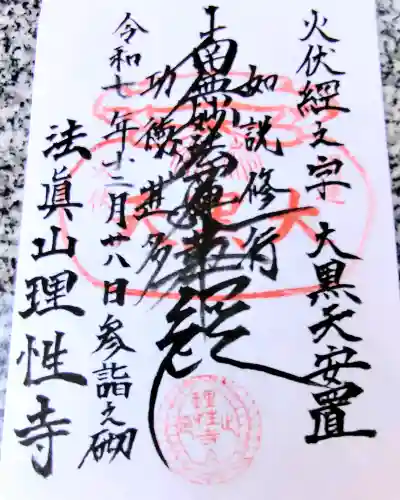 火伏經文字 大黒天安置
如説修行
南無妙法蓮華経
功徳甚多
令和七年十二月廿八日参詣之砌
法眞山理性寺